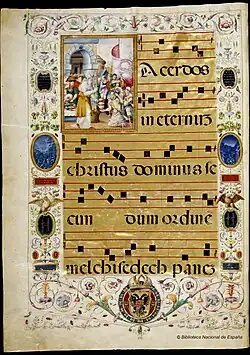 Acerdos
in eternuʒ
christus dominus se
cun dum ordine
melchisedech paneʒ
© Biblioteca Nacional de España